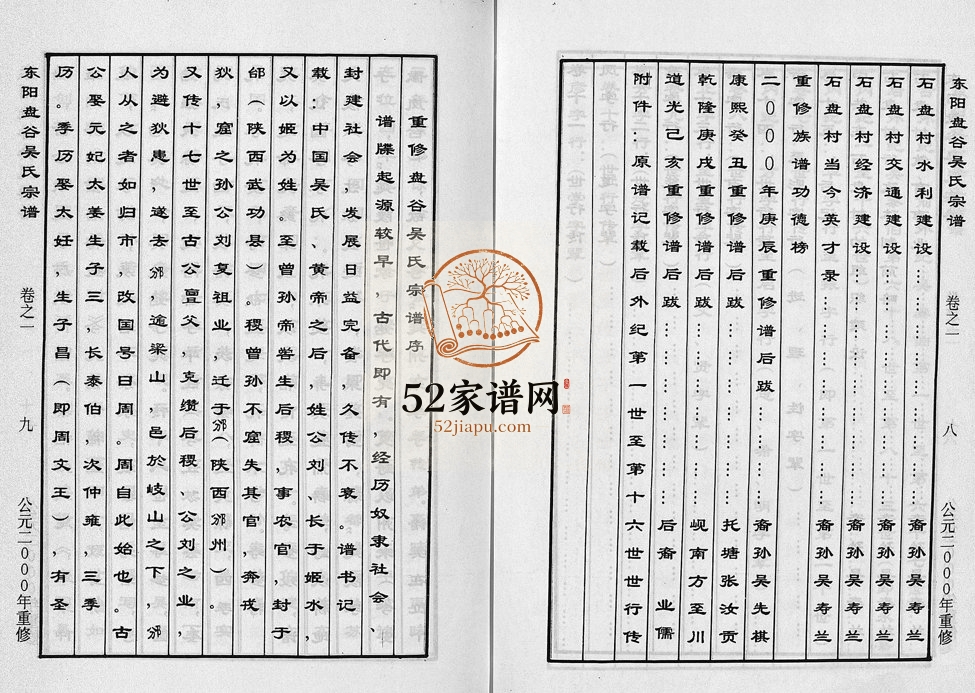 东阳盘谷吴氏宗谱 卷之一 八 公元二000年重修
石盘村水利建设……………裔孙吴寿兰
石盘村交通建设……………裔孙吴寿兰
石盘村经济建设……………裔孙吴寿兰
石盘村当今英才录……………裔孙吴寿兰
重修族谱功德榜
二000年庚辰重修谱后跋……………裔孙吴先棋
康熙癸丑重修谱后跋……………托塘张汝贡
乾隆庚戌重修谱后跋……………岘南方至川
道光己亥重修谱后跋……………后裔 业儒
附件：原谱记载后外纪第一世至第十六世世行传
重修盘谷吴氏宗谱序
谱牒起源较早，古代即有，经历奴隶社会、
封建社会，发展日益完备，久传不衰。谱书记
载：中国吴氏、黄帝之后，姓公刘、长于姬水，
又以姬为姓。至曾孙帝喾生后稷，事农官，封于
邰（陕西武功县）。稷曾孙不窋失其官，奔戎
狄，窋之孙公刘复祖业，迁于邠（陕西邠州）。
又传十七世至古公亶父，克缵后稷、公刘之业，
为避狄患，遂去邠，逾梁山，邑於岐山之下，邠
人从之者如归市，改国号曰周。周自此始也。古
公娶元妃太姜生子三，长泰伯，次仲雍，三季
历。季历娶太妊，生子昌（即周文王），有圣
东阳盘谷吴氏宗谱 卷之一 九 公元二000年重修
52家谱网
52jiapu.com